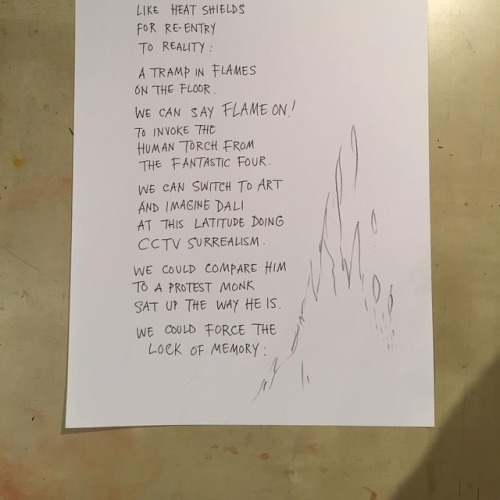 LIKE HEAT SHIELDS
FOR RE-ENTRY
TO REALITY:
A TRAMP IN FLAMES
ON THE FLOOR.
WE CAN SAY FLAME ON!
TO INVOKE THE
HUMAN TORCH FROM
THE FANTASTIC FOUR.
WE CAN SWITCH TO ART
AND IMAGINE DALI
AT THIS LATITUDE DOING
CCTV SURREALISM.
WE COULD COMPARE HIM
TO A PROTEST MONK
SAT UP THE WAY HE IS.
WE COULD FORCE THE
LOCK OF MEMORY: